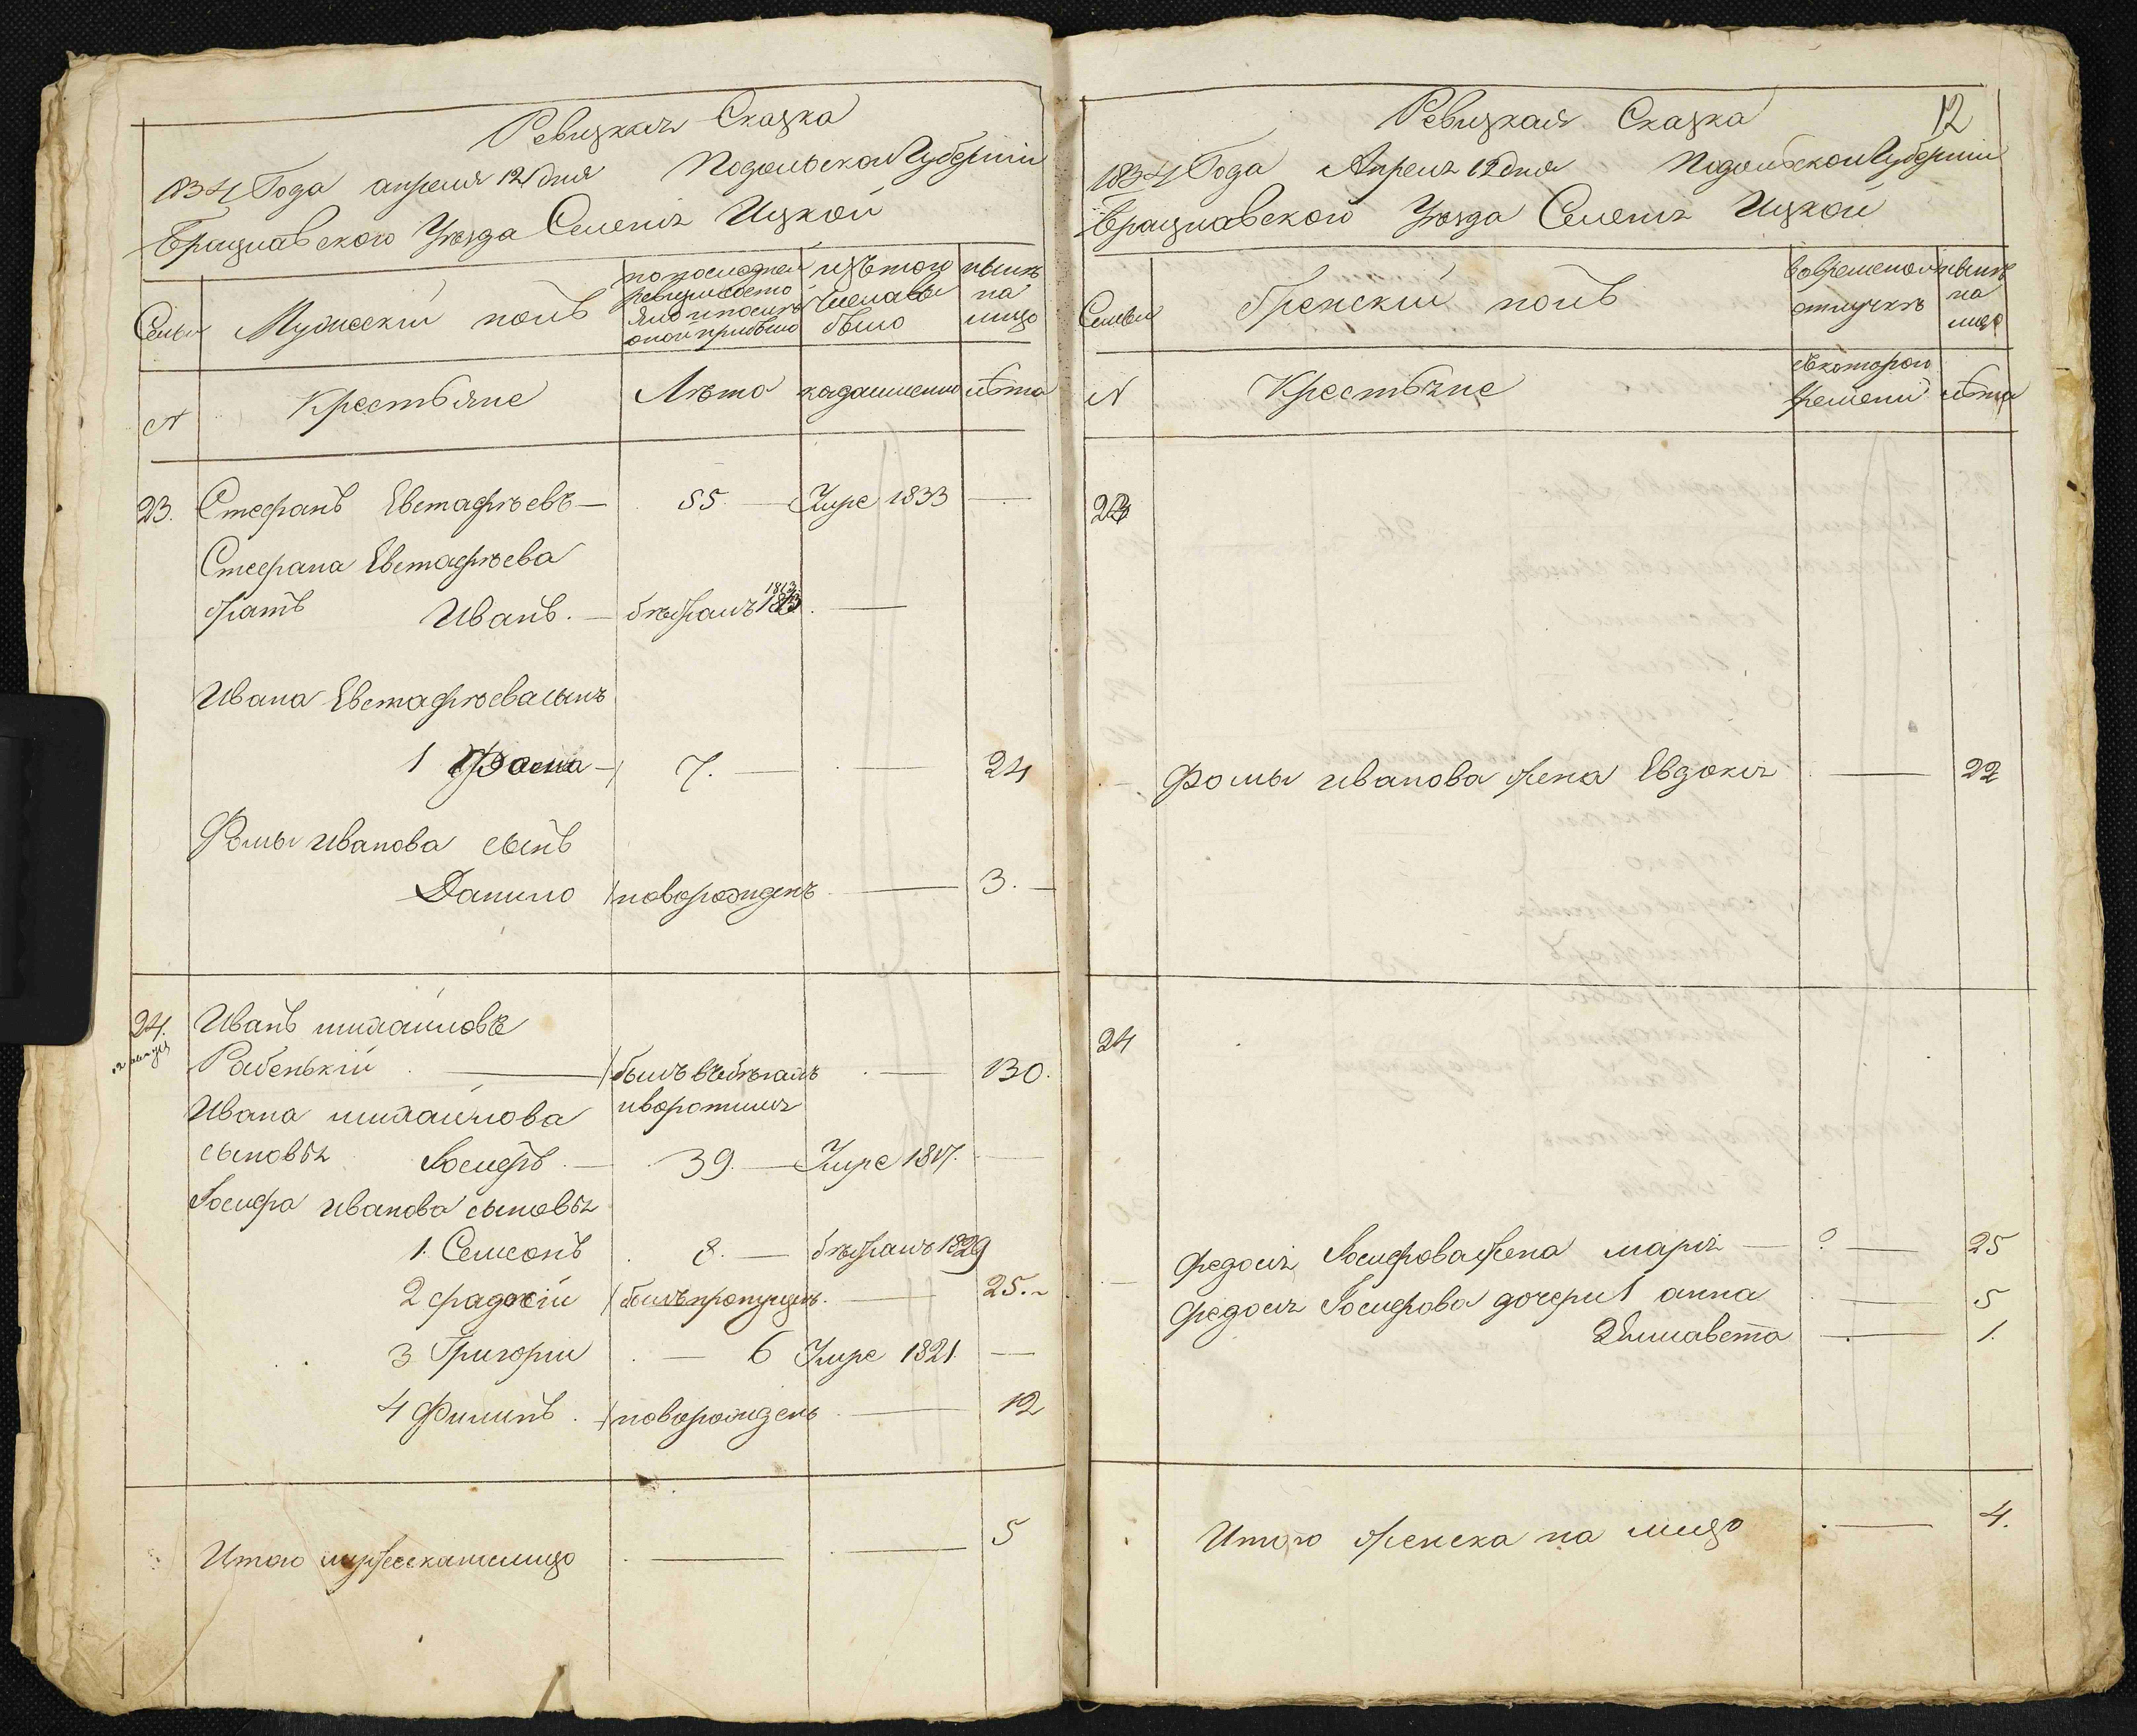 Ревизкая Сказка
1834 Года апреля 12 дня Подольской Губернии
Брацлавского Уезда Селения Ицкой
Семьи
Мужескій полъ
по последней
ревизіи состо
яло и после
оной прибыло
изъ того
числа вы
было
ныне
на
лицо
N
Крестьяне
Лета
когда именно
лета
23.
Стефанъ Евстафьевъ — 55. — Умре 1833 —
Стефана Евстафьева
братъ Иванъ. — бежалъ 1813. —
1813
Ивана Евстафьева сынъ
1 Фома — 7. — — 24
Фомы Иванова сынъ
Данило новорожденъ — 3. —
24.
Иванъ михайловъ
Рабенькій — былъ въ бегахъ — 130.
и воротился
Ивана михайлова
сыновья Іосифъ. — 39. — Умре 1817. —
Іосифа иванова сыновья
1. Семенъ 8. — бежалъ 1829
2 фадосіи былъ пропущенъ. — 25. ~
3 Григории — 6 Умре 1821. —
4 Филипъ. новорожденъ — 12
Итого мужеска на лицо — — 5
12
Ревизкая Сказка
1834 Года Апреля 12 дня Подольской Губернии
Брацлавского Уезда Селения Ицкой
Семьи
Женскій полъ
во временной
отлучке
ныне
на
лицо
N
Крестьяне
съ которого
времени
лета
23
Фомы иванова жена Евдокия — 22
24
Федосия Іосифова жена мария — — 25
Федосия Іосифова дочери 1 анна — 5
2 Елисавета — 1.
Итого женска на лицо — 4.